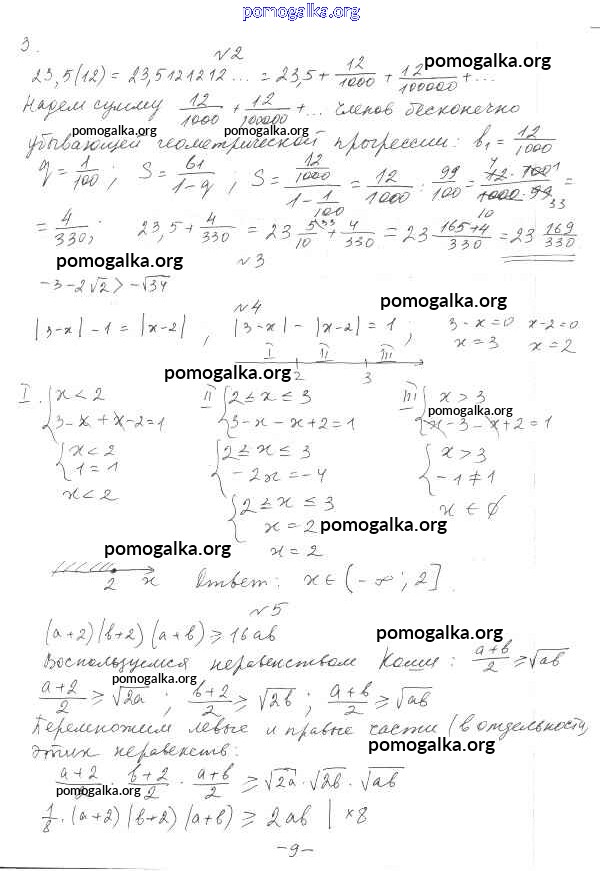 pomogalka.org
3.
№2
23,5(12) = 23,5121212... = 23,5 + 12/1000 + 12/100000 + ...
pomogalka.org
Найдем сумму 12/1000 + 12/100000 + ... членов бесконечно
pomogalka.org
убывающей геометрической прогрессии: b₁ = 12/1000
pomogalka.org pomogalka.org
q = 1/100; S = b1/(1-q); S = (12/1000)/(1 - 1/100) = 12/1000 : 99/100 = (12·100)/(1000·99) =
= 4/330; 23,5 + 4/330 = 23 5/10 + 4/330 = 23 (165+4)/330 = 23 169/330
pomogalka.org
№3
-3-2√2 > -√34
№4
pomogalka.org
|3-x| - 1 = |x-2| , |3-x| - |x-2| = 1 ; 3-x=0 x-2=0
x=3 x=2
I II III
2 3
pomogalka.org
I. { x < 2 II { 2 ≤ x ≤ 3 III { x > 3
3-x+x-2=1 3-x-x+2=1 x-3-x+2=1
pomogalka.org
{ x < 2 { 2 ≤ x ≤ 3 { x > 3
1 = 1 -2x = -4 -1 ≠ 1
x < 2 { 2 ≤ x ≤ 3 x ∈ ∅
x = 2 pomogalka.org
pomogalka.org x = 2
2 x Ответ: x ∈ (-∞; 2]
№5
(a+2)(b+2)(a+b) ≥ 16ab
pomogalka.org
Воспользуемся неравенством Коши: (a+b)/2 ≥ √ab
pomogalka.org
(a+2)/2 ≥ √2a ; (b+2)/2 ≥ √2b ; (a+b)/2 ≥ √ab
Перемножим левые и правые части (в отдельности)
pomogalka.org
этих неравенств:
(a+2)/2 · (b+2)/2 · (a+b)/2 ≥ √2a · √2b · √ab
pomogalka.org pomogalka.org
1/8 · (a+2)(b+2)(a+b) ≥ 2ab | ×8
-9-